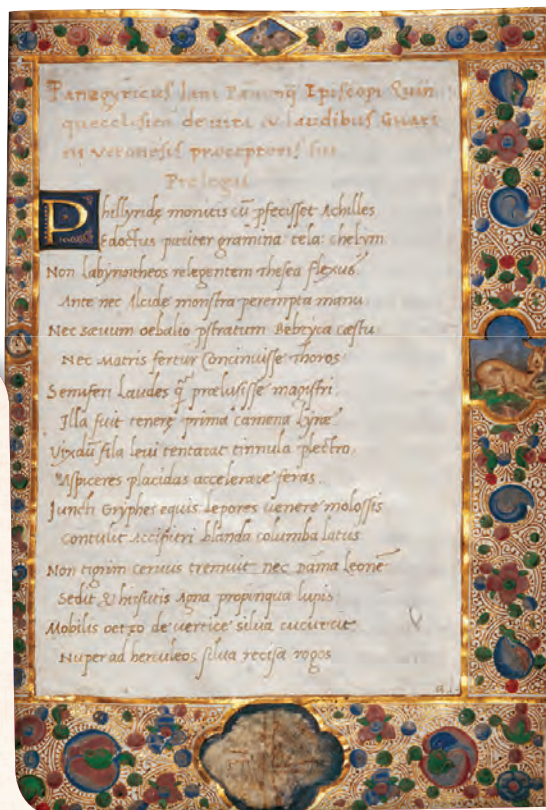 Panegyricus Iani Pannonij Episcopi Quin
queecclesien de vita & laudibus Guari
ni veronesis praeceptoris sui
Prologus
Phillyridę monitis cū pfecisset Achilles
Edoctus pariter gramina tela: chelym
Non labyrintheos relegentem thesea flexus.
Ante nec Alcide monstra perempta manu
Nec saevum oebalio pstratum Bebryca caestu
Nec Matris fertur Concinuisse thoros
Semiferi Laudes praelusisse magistri.
Illa fuit tenerę prima camena Lyrae
Vixdū fila leui tentarat tinnula plectro
Aspiceres placidas accelerare feras.
Juncti Gryphes equis lepores uenere molossis
Contulit Accipitri blanda columba latus
Non tigrim ceruus tremuit nec Dama Leonē
Sedit & hirsutis Agna propinqua lupis
Mobilis oetęo de uertice silua cucurrit
Nuper ad herculeos silua recisa rogos